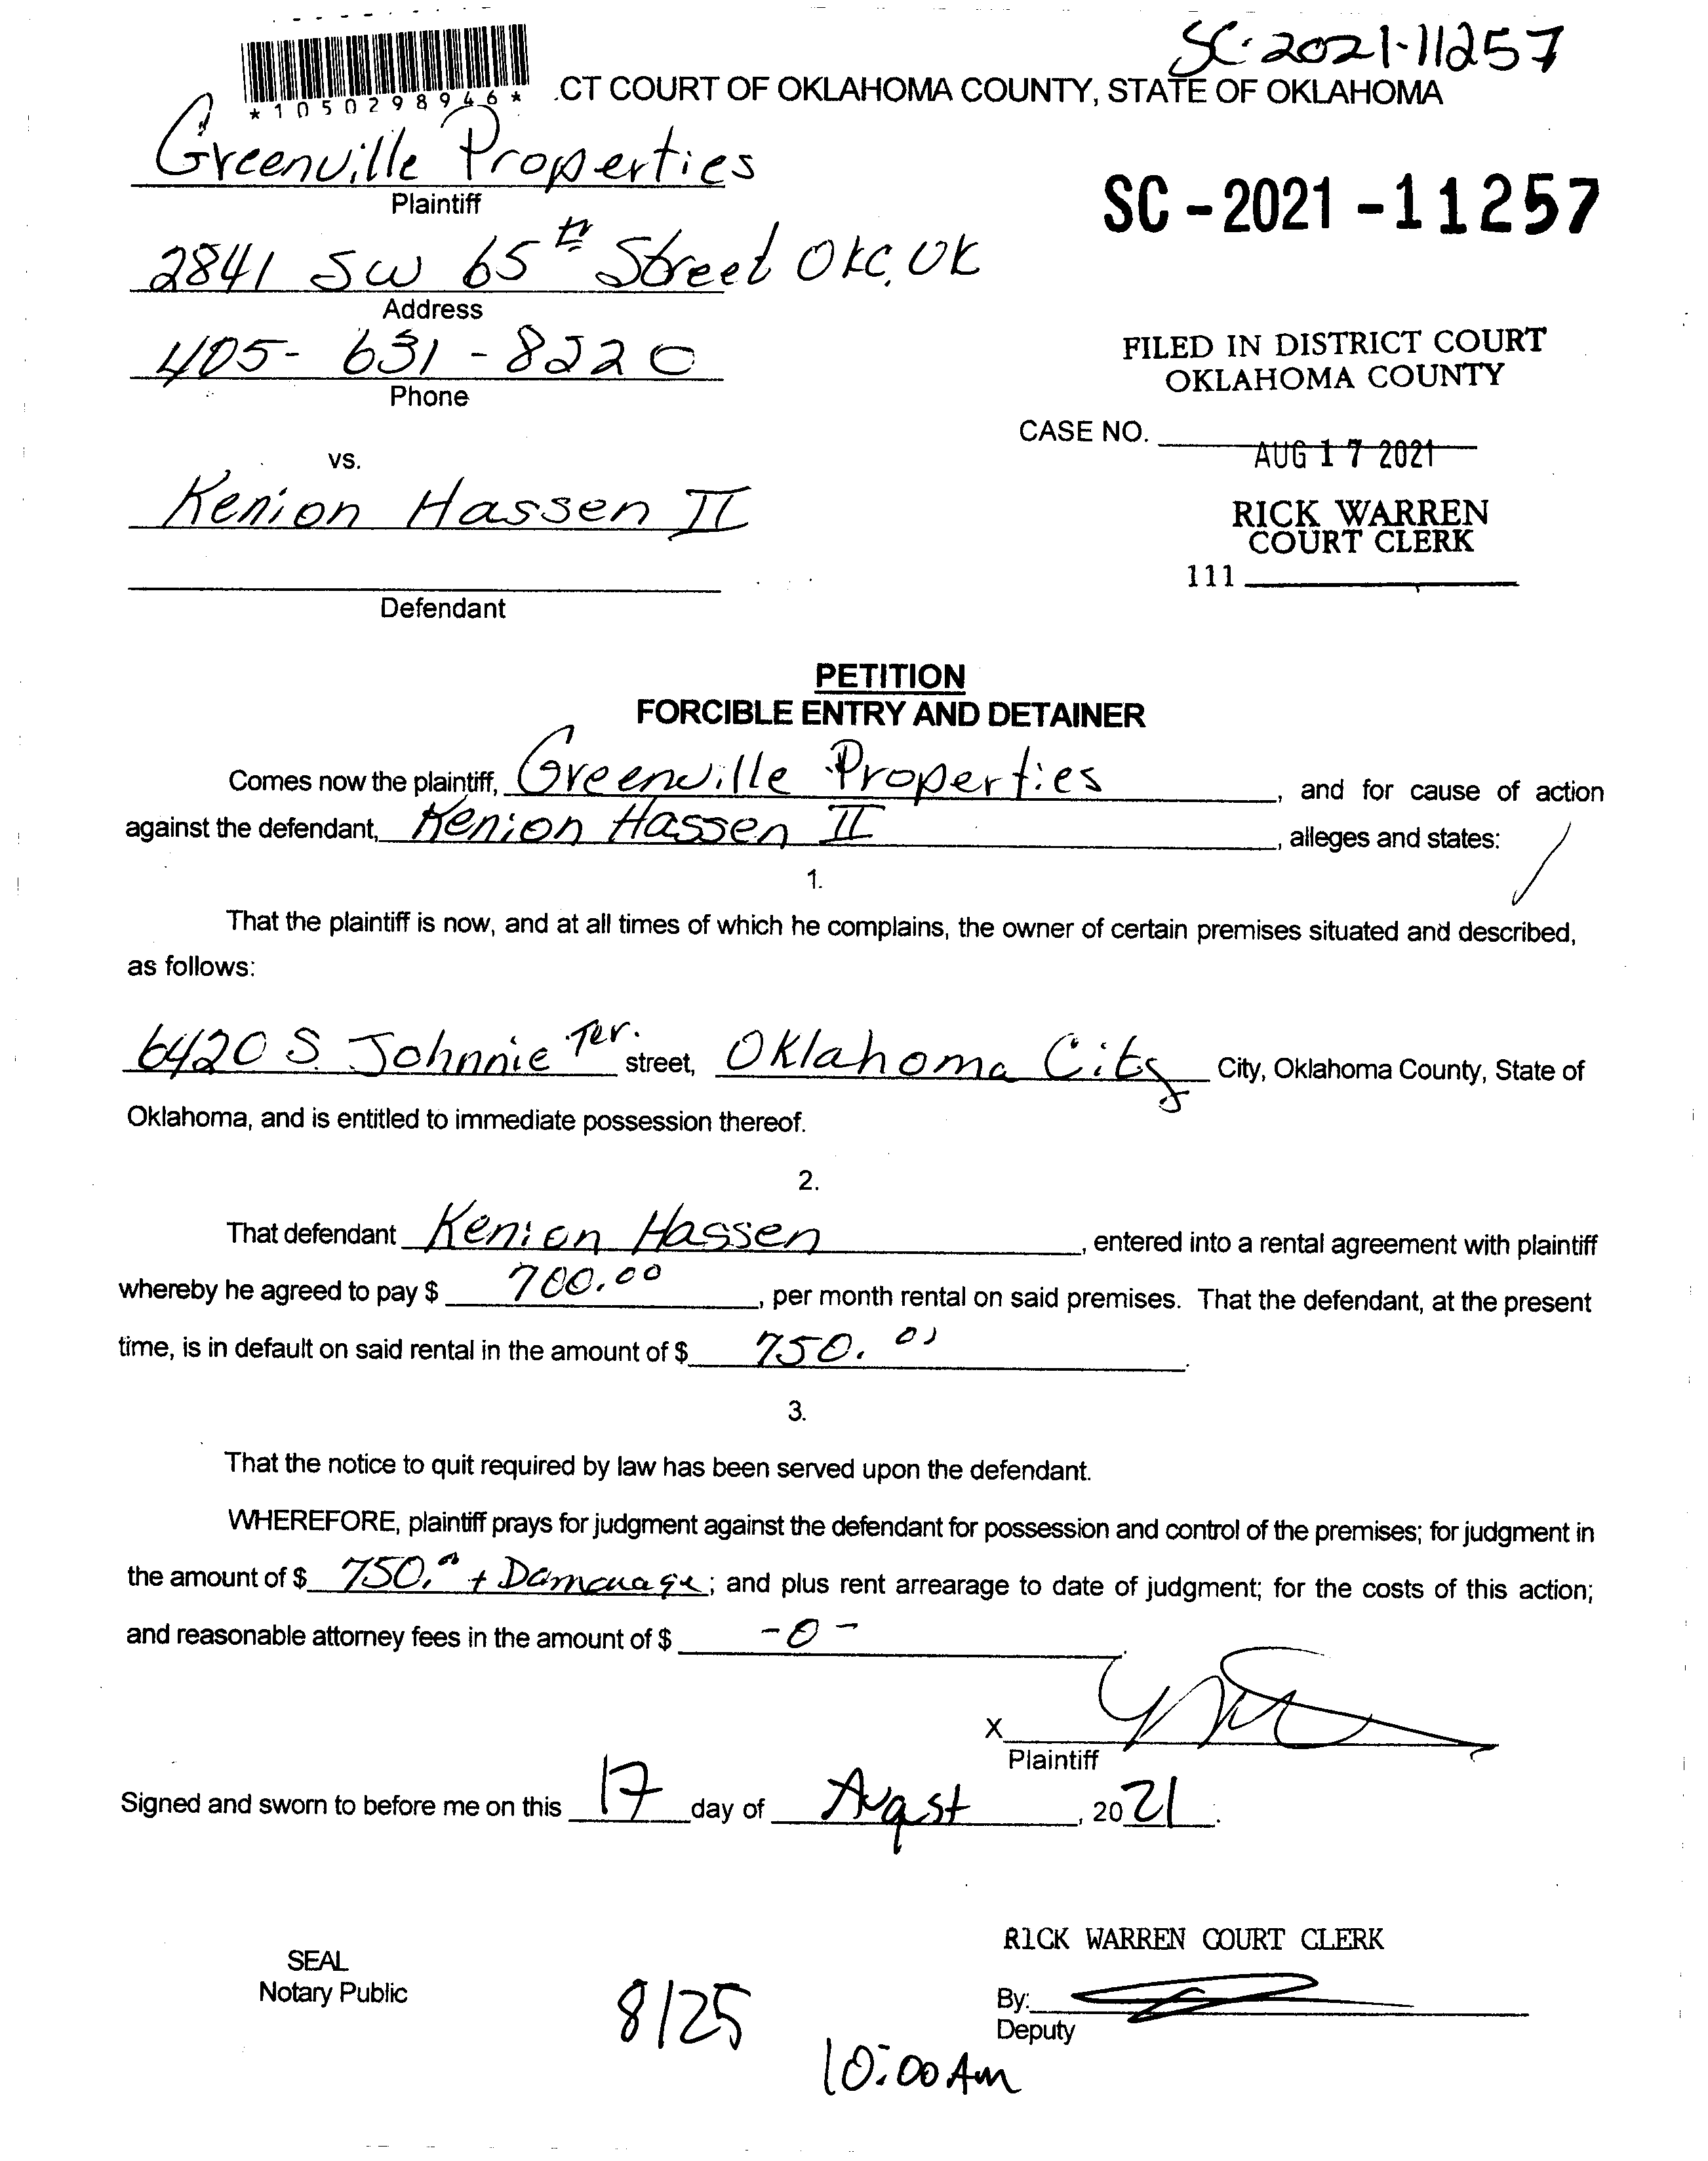 SC-2021-11257
*1050298946*
.CT COURT OF OKLAHOMA COUNTY, STATE OF OKLAHOMA
Greenville Properties
Plaintiff
SC-2021-11257
2841 SW 65th Street OKC, OK
Address
405-631-8220
Phone
FILED IN DISTRICT COURT
OKLAHOMA COUNTY
CASE NO.
AUG 17 2021
vs.
Kenion Hassen II
RICK WARREN
COURT CLERK
111
Defendant
PETITION
FORCIBLE ENTRY AND DETAINER
Comes now the plaintiff, Greenville Properties, and for cause of action
against the defendant, Kenion Hassen II, alleges and states:
1.
That the plaintiff is now, and at all times of which he complains, the owner of certain premises situated and described,
as follows:
6420 S. Johnnie Ter. street, Oklahoma City City, Oklahoma County, State of
Oklahoma, and is entitled to immediate possession thereof.
2.
That defendant Kenion Hassen, entered into a rental agreement with plaintiff
whereby he agreed to pay $ 700.00, per month rental on said premises. That the defendant, at the present
time, is in default on said rental in the amount of $ 750.00.
3.
That the notice to quit required by law has been served upon the defendant.
WHEREFORE, plaintiff prays for judgment against the defendant for possession and control of the premises; for judgment in
the amount of $ 750.00 + ; and plus rent arrearage to date of judgment; for the costs of this action;
and reasonable attorney fees in the amount of $ -0-
X
Plaintiff
Signed and sworn to before me on this 17 day of Avgst, 2021.
RICK WARREN COURT CLERK
SEAL
Notary Public
8/25
By:
Deputy
10:00 Am